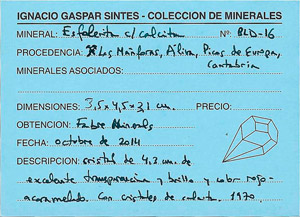 IGNACIO GASPAR SINTES - COLECCION DE MINERALES
MINERAL: Esfalerita c/ calcita Nº: BLD-16
PROCEDENCIA: Las Manforas, Aliva, Picos de Europa,
Cantabria
MINERALES ASOCIADOS:
DIMENSIONES: 3,5 x 4,5 x 3,1 cm. PRECIO:
OBTENCION: Fabre Minerals
FECHA: octubre de 2014
DESCRIPCION: cristal de 4,2 cm. de
excelente transparencia y brillo y color rojo-
acaramelado. Con cristales de calcita. 1970